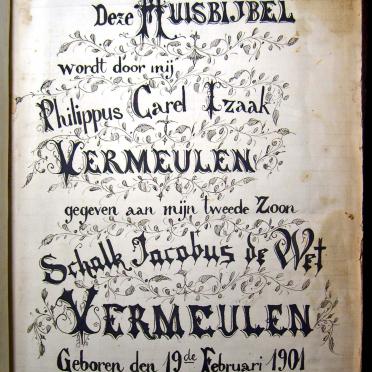 Deze HUISBIJBEL
wordt door mij
Philippus Carel Izaak
VERMEULEN
gegeven aan mijn tweede Zoon
Schalk Jacobus de Wet
VERMEULEN
Geboren den 19de Februari 1901